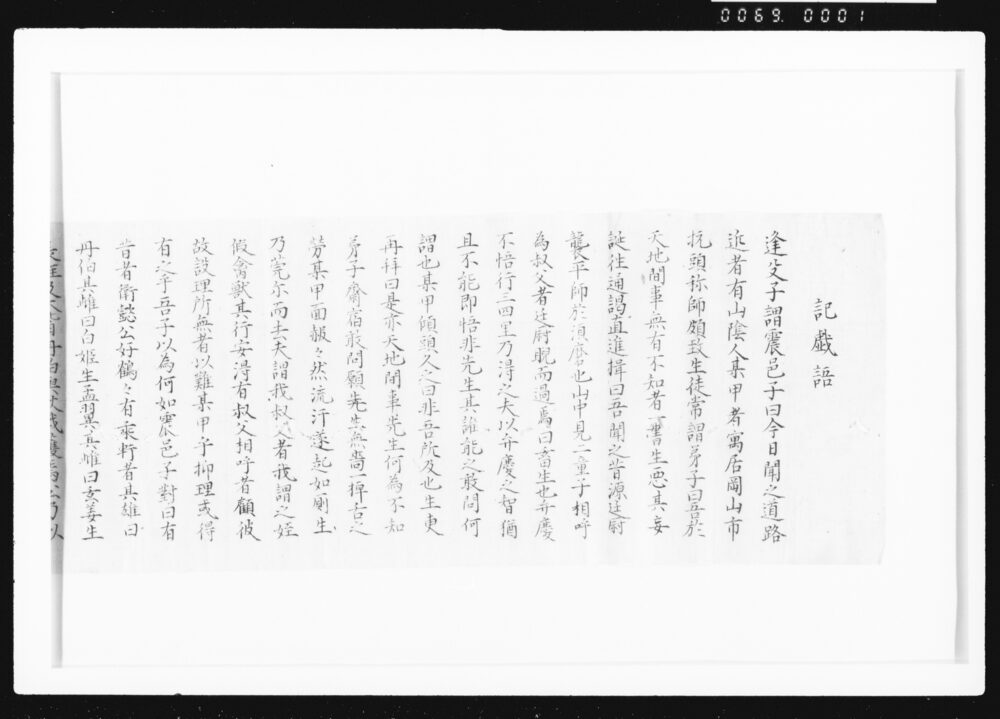 0069.0001
記戲語
逢父子謂震邑子曰今日聞之道路
近者有山陰人某甲者寓居岡山市
抗頭称師頗致生徒常謂弟子曰吾於
天地間事無有不知者一書生悪其妄
誕往通謁直進揖曰吾聞之昔源廷尉
襲平師於須磨也山中見一童子相呼
為叔父者廷尉睨而過焉曰畜生也弁慶
不悟行三四里乃得之夫以弁慶之智猶
且不能即悟非先生其誰能之敢問何
謂也某甲傾頭久之曰非吾所及也生更
再拜曰是亦天地間事先生何為不如
弟子齋宿敢問願先生無嗇一掉舌之
勞某甲面赧々然流汗遂起如厠生
乃莞尓而去夫謂我叔父者我謂之姪
假禽獣其行安得有叔父相呼者顧彼
故設理所無者以難某甲乎抑理或得
有之乎吾子以為何如震邑子對曰有
昔者衛懿公好鶴々有乗軒者其雄曰
丹伯其雌曰白姫生孟翼其雌曰玄姜生